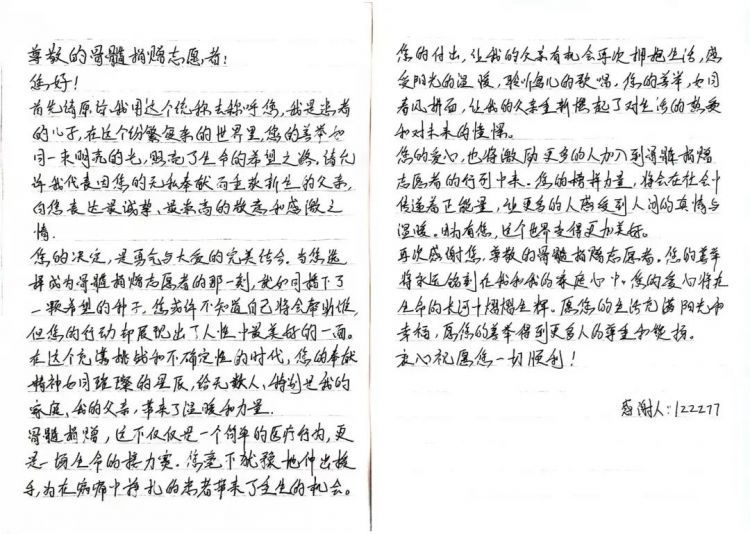 尊敬的骨髓捐赠志愿者：
您好！
首先请原谅我用这个统称去称呼您，我是患者
的儿子，在这个纷繁复杂的世界里，您的善举如
同一束明亮的光，照亮了生命的希望之路。请允
许我代表因您的无私奉献而重获新生的父亲，
向您表达最诚挚、最崇高的敬意和感激之
情。
您的决定，是勇气与大爱的完美结合。当您选
择成为骨髓捐赠志愿者的那一刻，就如同播下了
一颗希望的种子，您或许不知道自己将会帮助谁，
但您的行动却展现出了人性中最美好的一面。
在这个充满挑战和不确定性的时代，您的奉献
精神如同璀璨的星辰，给无数人、特别是我的
家庭、我的父亲，带来了温暖和力量。
骨髓捐赠，这不仅仅是一个简单的医疗行为，更
是一场生命的接力赛。您毫不犹豫地伸出援
手，为在病痛中挣扎的患者带来了重生的机会。
您的付出，让我的父亲有机会再次拥抱生活，感
受阳光的温暖，聆听鸟儿的歌唱。您的善举，如同
春风拂面，让我的父亲重新燃起了对生活的热爱
和对未来的憧憬。
您的爱心，也将激励更多的人加入到骨髓捐赠
志愿者的行列中来。您的榜样力量，将会在社会中
传递着正能量，让更多的人感受到人间的真情与
温暖。因为有您，这个世界变得更加美好。
再次感谢您，尊敬的骨髓捐赠志愿者。您的善举
将永远铭刻在我和我的家庭心中。您的爱心将在
生命的长河中熠熠生辉。愿您的生活充满阳光和
幸福，愿您的善举得到更多人的尊重和赞扬。
衷心祝愿您一切顺利！
感谢人：122277